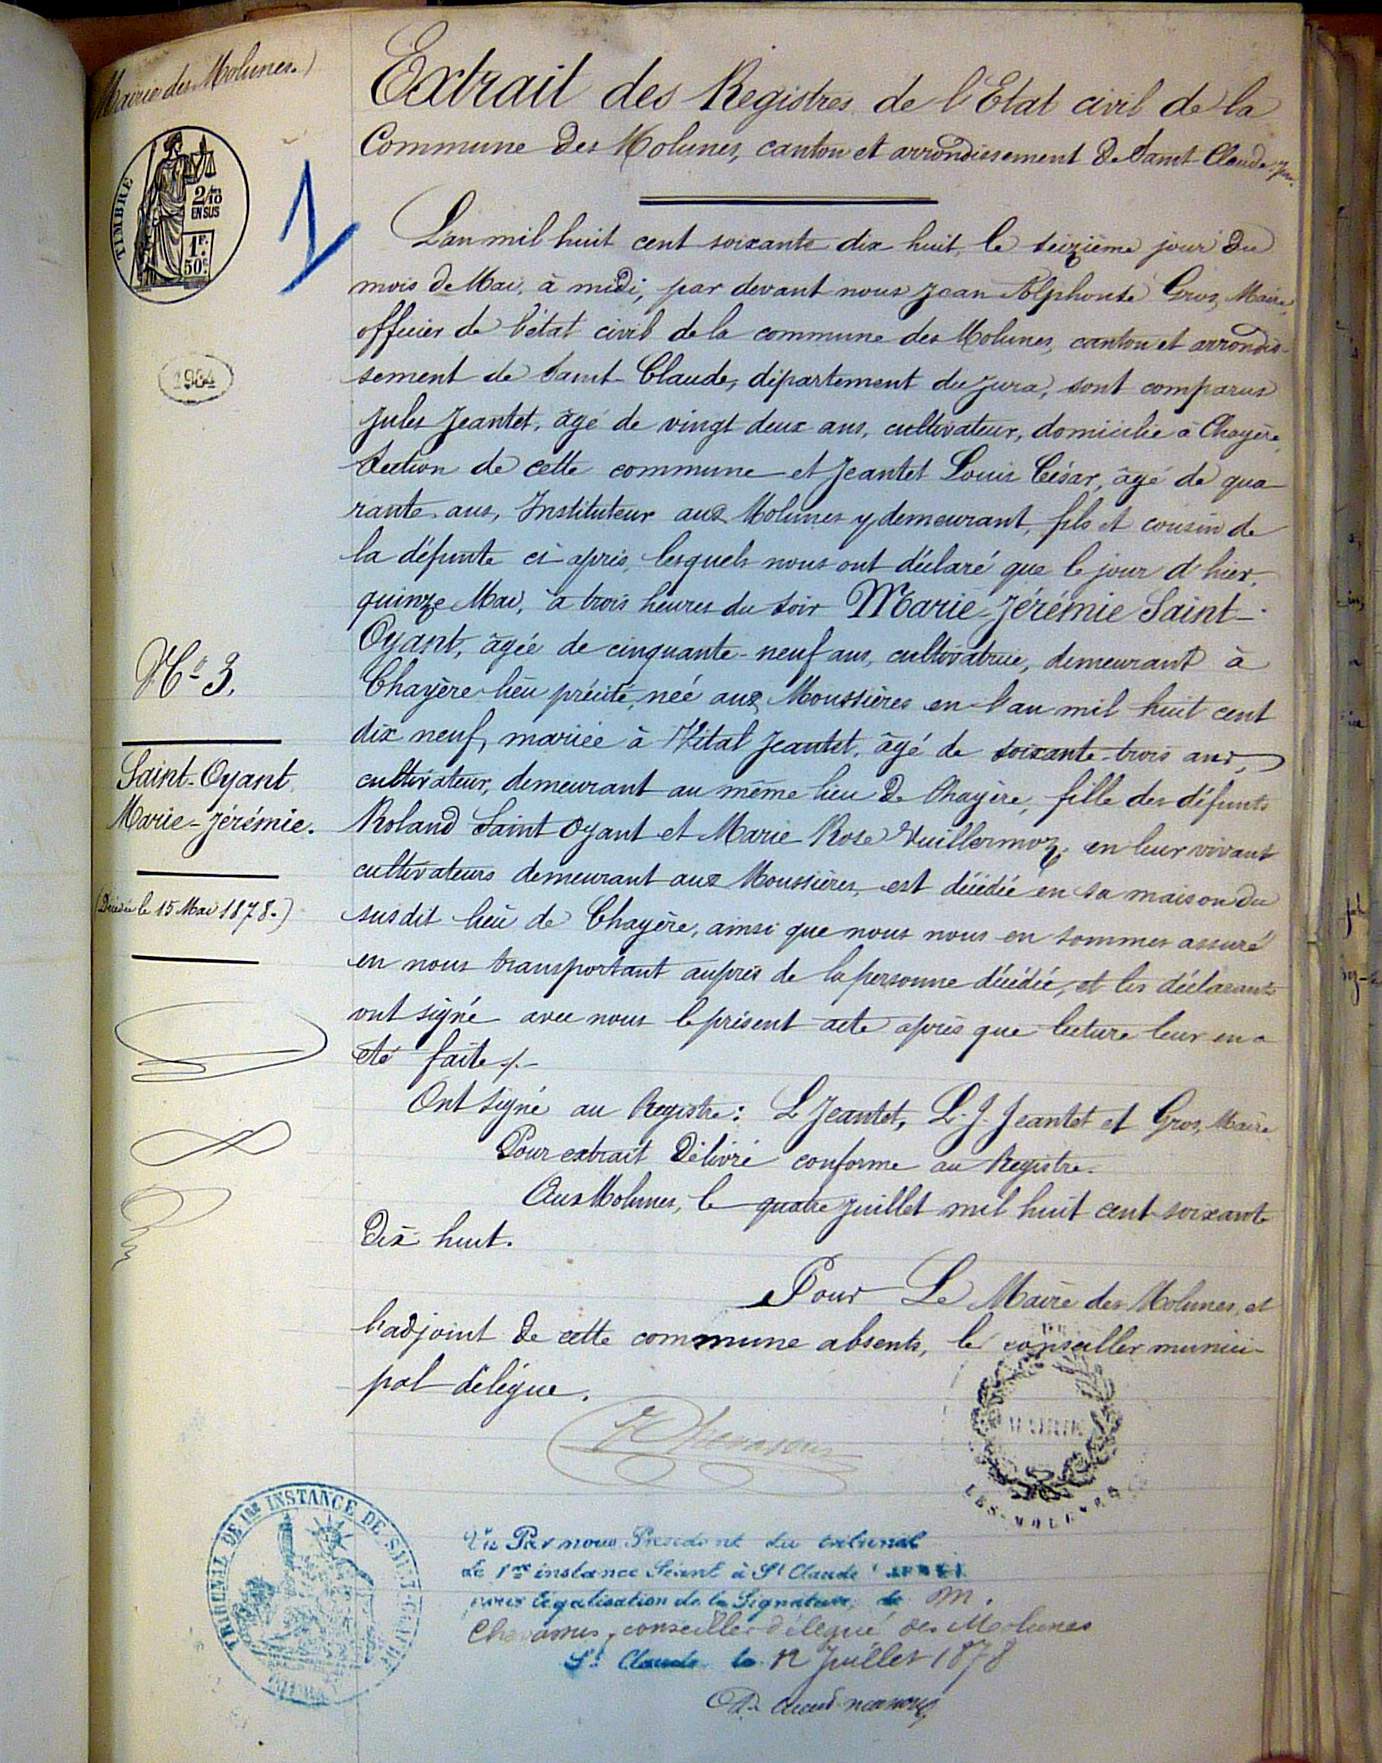 Mairie des Molunes.)
TIMBRE
2/10
EN SUS
1F.
50c
1
1984
N° 3.
Saint-Oyant
Marie-Jérémie.
(Décédée le 15 Mai 1878.)
Extrait des Registres de l'Etat civil de la
Commune des Molunes, canton et arrondissement de Saint-Claude, Jura.
L'an mil huit cent soixante dix huit, le seizième jour du
mois de Mai, à midi, par devant nous Jean Alphonse Gros, Maire,
officier de l'état civil de la commune des Molunes, canton et arrondis-
sement de Saint-Claude, département du Jura, sont comparus
Jules Jeantet, âgé de vingt deux ans, cultivateur, domicilié à Chayère,
Section de cette commune et Jeantet Louis César, âgé de qua-
rante ans, Instituteur aux Molunes y demeurant, fils et cousin de
la défunte ci-après, lesquels nous ont déclaré que le jour d'hier,
quinze Mai, à trois heures du soir Marie-Jérémie Saint-
Oyant, âgée de cinquante-neuf ans, cultivatrice, demeurant à
Chayère lieu précité, née aux Moussières en l'an mil huit cent
dix neuf, mariée à Vital Jeantet, âgé de soixante-trois ans,
cultivateur, demeurant au même lieu de Chayère, fille des défunts
Roland Saint Oyant et Marie Rose Vuillermoz, en leur vivant
cultivateurs demeurant aux Moussières, est décédée en sa maison du
susdit lieu de Chayère, ainsi que nous nous en sommes assuré
en nous transportant auprès de la personne décédée, et les déclarants
ont signé avec nous le présent acte après que lecture leur en a
été faite./.
Ont signé au Registre: L Jeantet, L. J. Jeantet et Gros, Maire
Pour extrait délivré conforme au Registre.
Aux Molunes, le quatre juillet mil huit cent soixante
dix huit.
Pour Le Maire des Molunes, et
l'adjoint de cette commune absents, le conseiller munici-
pal délégué.
MAIRIE
LES MOLUNES
TRIBUNAL DE 1RE INSTANCE DE SAINT-CLAUDE
Vu Par nous Président du tribunal
de 1re instance Séant à St Claude
pour légalisation de la Signature de M.
conseiller délégué des Molunes
St Claude le 12 Juillet 1878